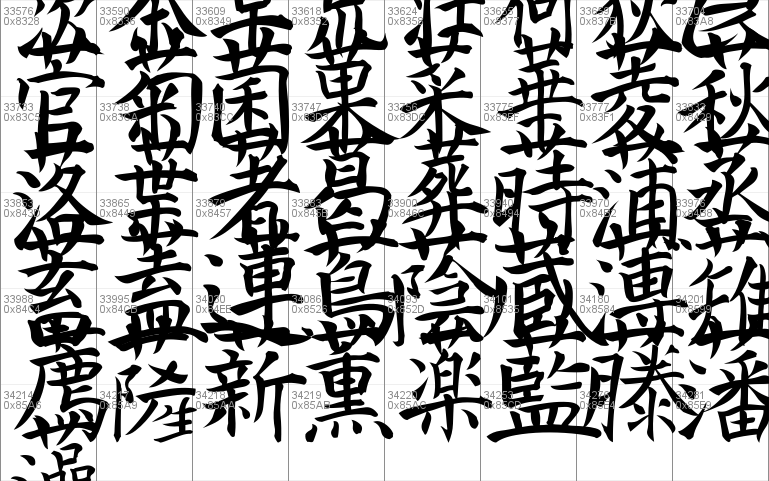 33576 33590 33609 33618 33624 33655 33659 33704
0x8328 0x8336 0x8349 0x8352 0x8358 0x8377 0x837B 0x83A8
33733 33738 33740 33747 33756 33775 33777 33833
0x83C5 0x83CA 0x83CC 0x83D3 0x83DC 0x83EF 0x83F1 0x8429
菅 菊 菌 菓 菜 華 菱 萩
33853 33865 33879 33883 33900 33940 33970 33976
0x843D 0x8449 0x8457 0x845B 0x846C 0x8494 0x84B2 0x84B8
落 葉 著 葛 葬 蒔 蒲 蒸
33988 33995 34030 34086 34093 34101 34180 34201
0x84C4 0x84CB 0x84EE 0x8526 0x852D 0x8535 0x8584 0x8599
蓄 蓋 蓮 蔦 蔭 蔵 薄 薙
34214 34217 34218 34219 34220 34253 34276 34281
0x85A6 0x85A9 0x85AA 0x85AB 0x85AC 0x85CD 0x85E4 0x85E9
薦 薩 薪 薫 薬 藍 藤 藩
藻